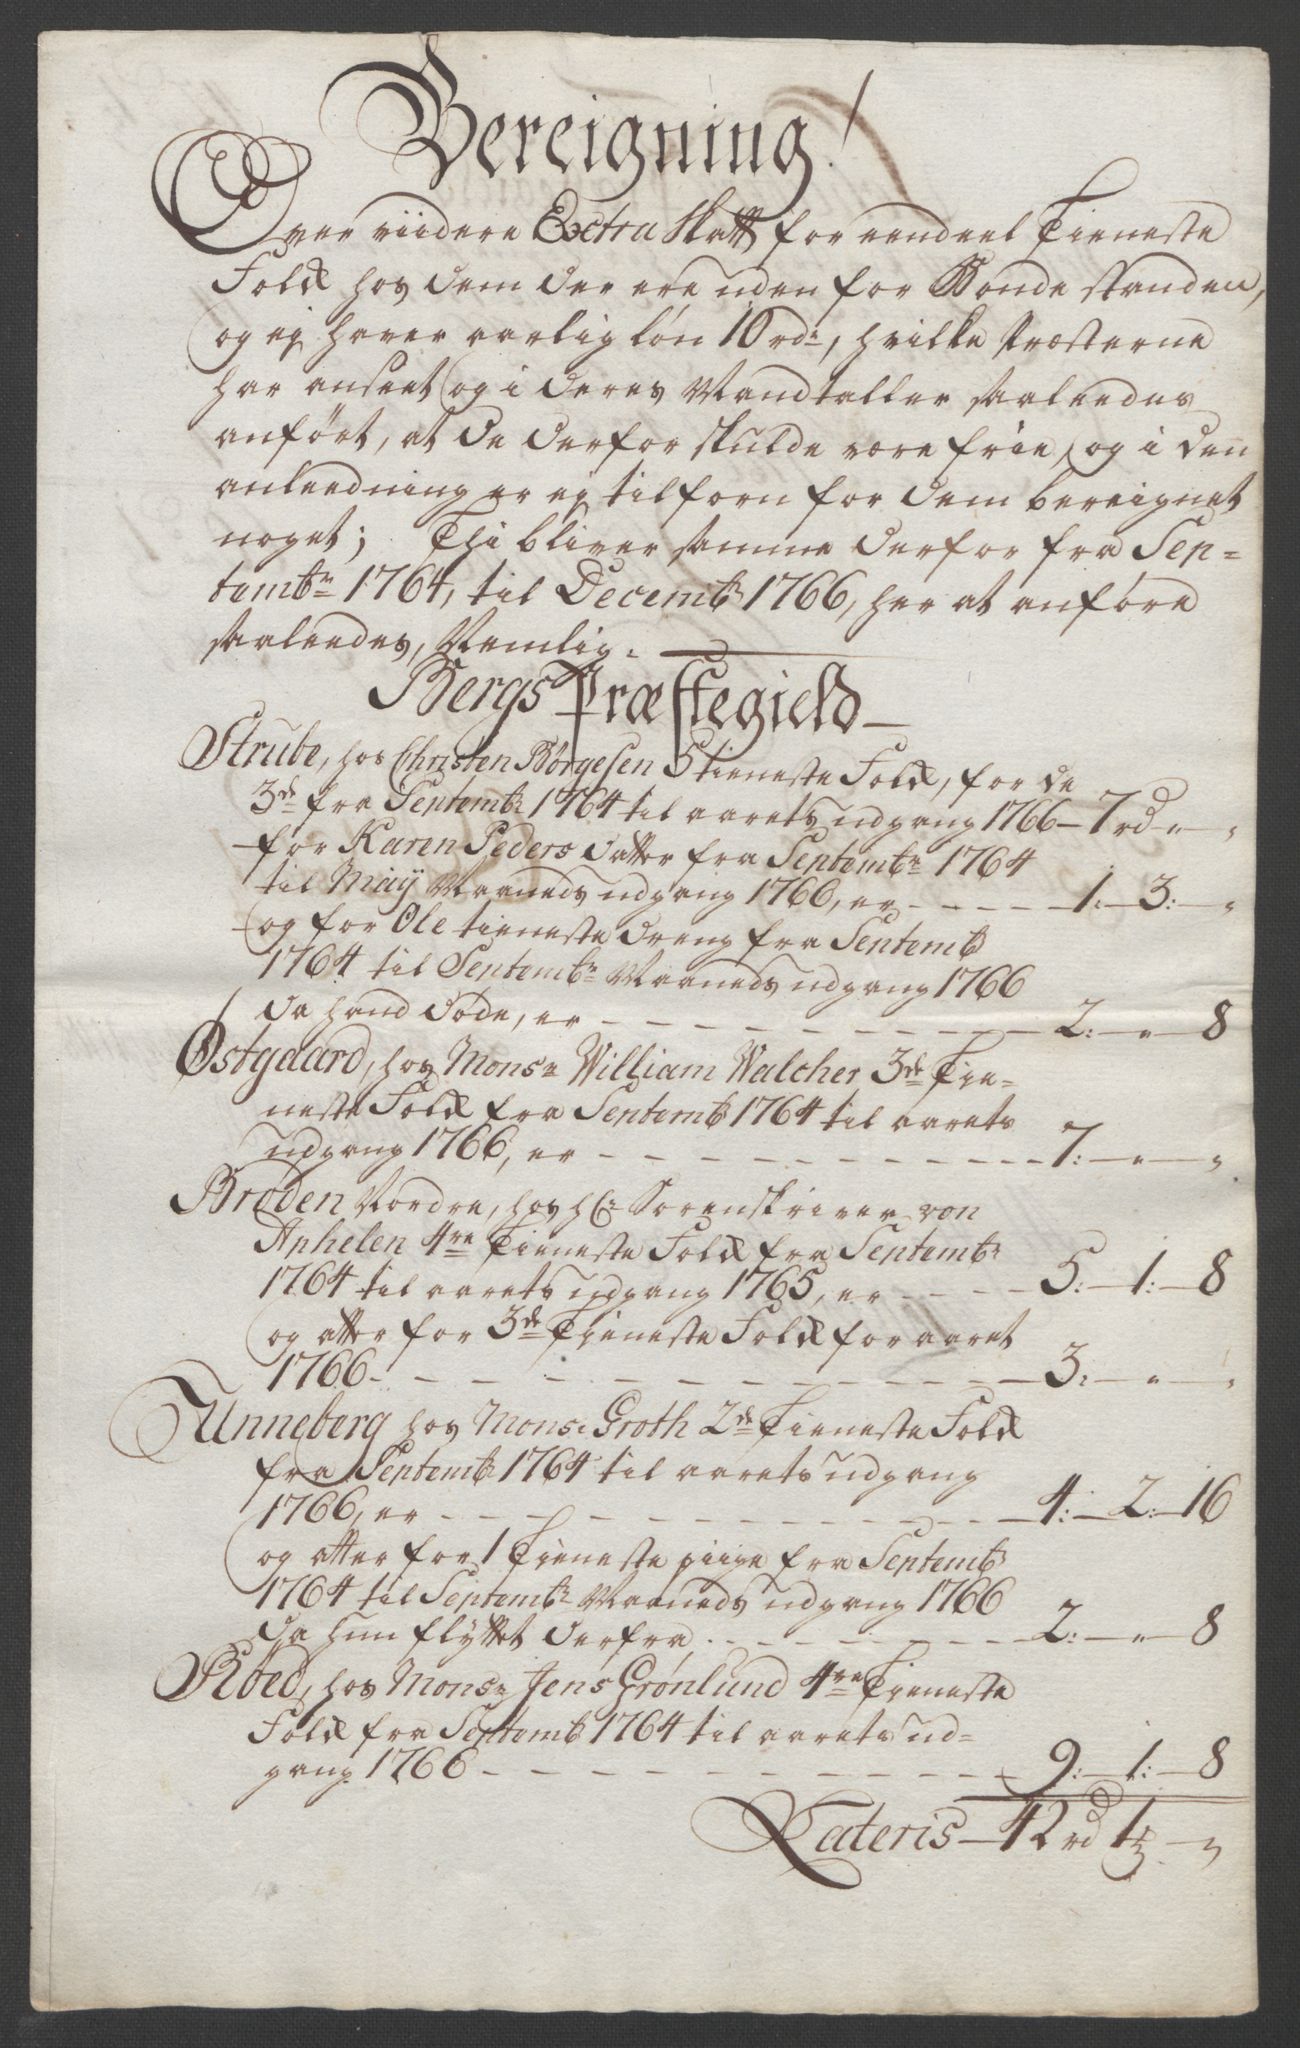 Bereigning!
Over viidere Extra Skatt for eendeel Tieneste
Folk hos dem der ere uden for Bonde standen,
og ej haver aarlig løn 10 rdr, hvilke Præsterne
har anseet og i deres Mandtaller saaleedes
anført, at de derfor skulde være frie, og i den
anleedning er ej tilforn for dem bereignet
noget; Thi bliver samme derfor fra Sep-
tembr 1764, til Decembr 1766, her at anføre
saaleedes, Nemlig.
Bergs Præstegield
Strube, hos Christen Børgesen 5 tieneste Folk, for de
3de fra Septembr 1764 til aarets udgang 1766 — 7 rd " "
for Karen Peders datter fra Septembr 1764
til Maÿ Maaneds udgang 1766, er — — — — 1: 3: "
og for Ole tieneste dreng fra Septembr
1764 til Septembr Maaneds udgang 1766
da hand døde, er — — — — — — — — 2: " 8
Østgaard, hos Monsr William Walcher 3de Tie-
neste Folk fra Septembr 1764 til aarets
udgang 1766, er — — — — — — — — 7: " "
Brøden Nordre, hos hr Sorenskriver von
Aphelen 4re Tieneste Folk fra Septembr
1764 til aarets udgang 1765, er — — — — 5: 1: 8
og atter for 3de Tieneste Folk for aaret
1766 — — — — — — — — — — — 3: " "
Unneberg hos Monsr Groth 2de Tieneste Folk
fra Septembr 1764 til aarets udgang
1766, er — — — — — — — — — — — 4: 2: 16
og atter for 1 Tieneste piige fra Septembr
1764 til Septembr Maaneds udgang 1766
da hun flyttet derfra — — — — — — 2: " 8
Røed, hos Monsr Jens Grønlund 4re Tieneste
Folk fra Septembr 1764 til aarets ud-
gang 1766 — — — — — — — — — — 9: 1: 8
Lateris — 42 rd 1 "